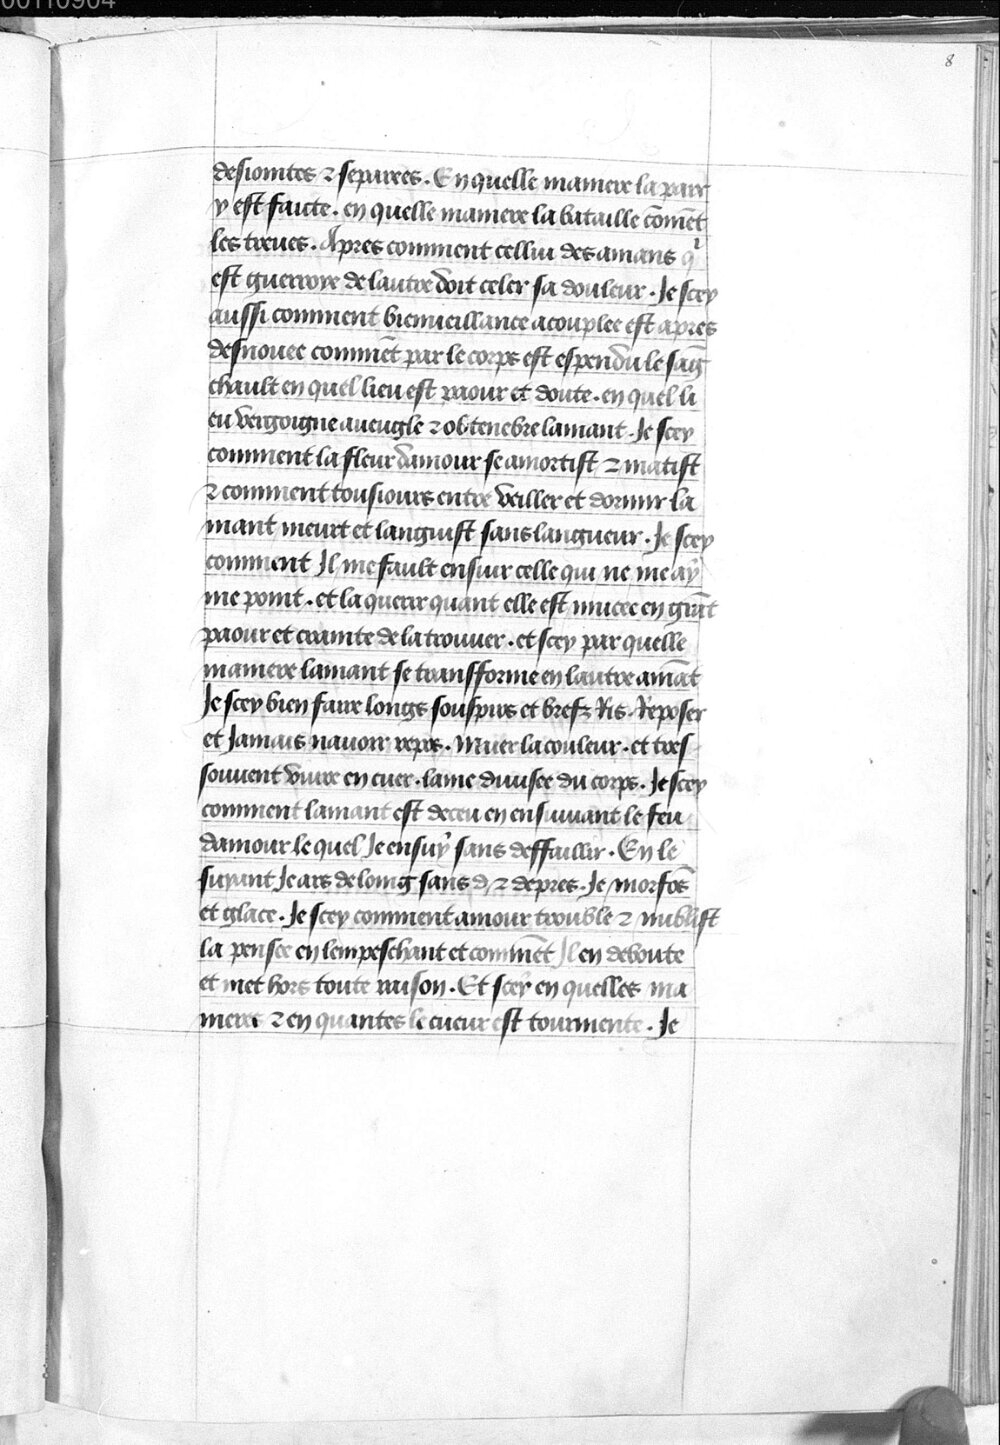 00110904
8
desiointes ⁊ separees. En quelle maniere la paix
y est faicte. en quelle maniere la bataille cōmēt
les treues. Apres comment cellui des amans qⁱ
est guerroye de lautre doit celer sa douleur. Je scey
aussi comment bienueillance acouplee est apres
desnouee commēt par le corps est espendu le sāg
chault en quel lieu est paour et doute. en quel li
eu vergoigne aueugle ⁊ obtenebre lamant. Je scey
comment la fleur damour se amortist ⁊ matist
⁊ comment tousiours entre veiller et dormir la
mant meurt et languist sans langueur. Je scey
comment Il me fault ensuir celle qui ne me ay
me point. et la querir quant elle est mucee en grāt
paour et crainte de la trouuer. et scey par quelle
maniere lamant se transforme en lautre amāt
Je scey bien faire longs souspirs et brefz Ris. Reposer
et Jamais nauoir repos. Muer la couleur. et tres
souuent viure en cuer. lame diuisee du corps. Je scey
comment lamant est deceu en ensuiuant le feu
damour le quel Je ensuy sans deffaillir. En le
suyant Je ars de loing sans d ⁊ de pres. Je morfōs
et glace. Je scey comment amour trouble ⁊ nublist
la pensee en lempeschant et commēt Il en deboute
et met hors toute raison. Et scey en quelles ma
nieres ⁊ en quantes le cueur est tourmente. Je